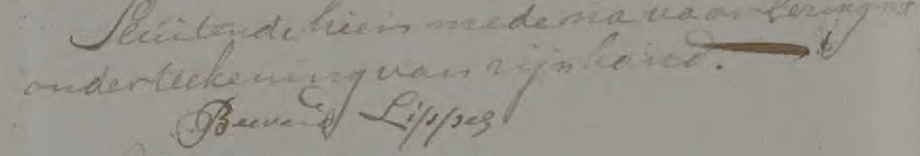 Sluitende hier mede na voorlezing met
onderteekening van zijn hand.
Beerend Lippes